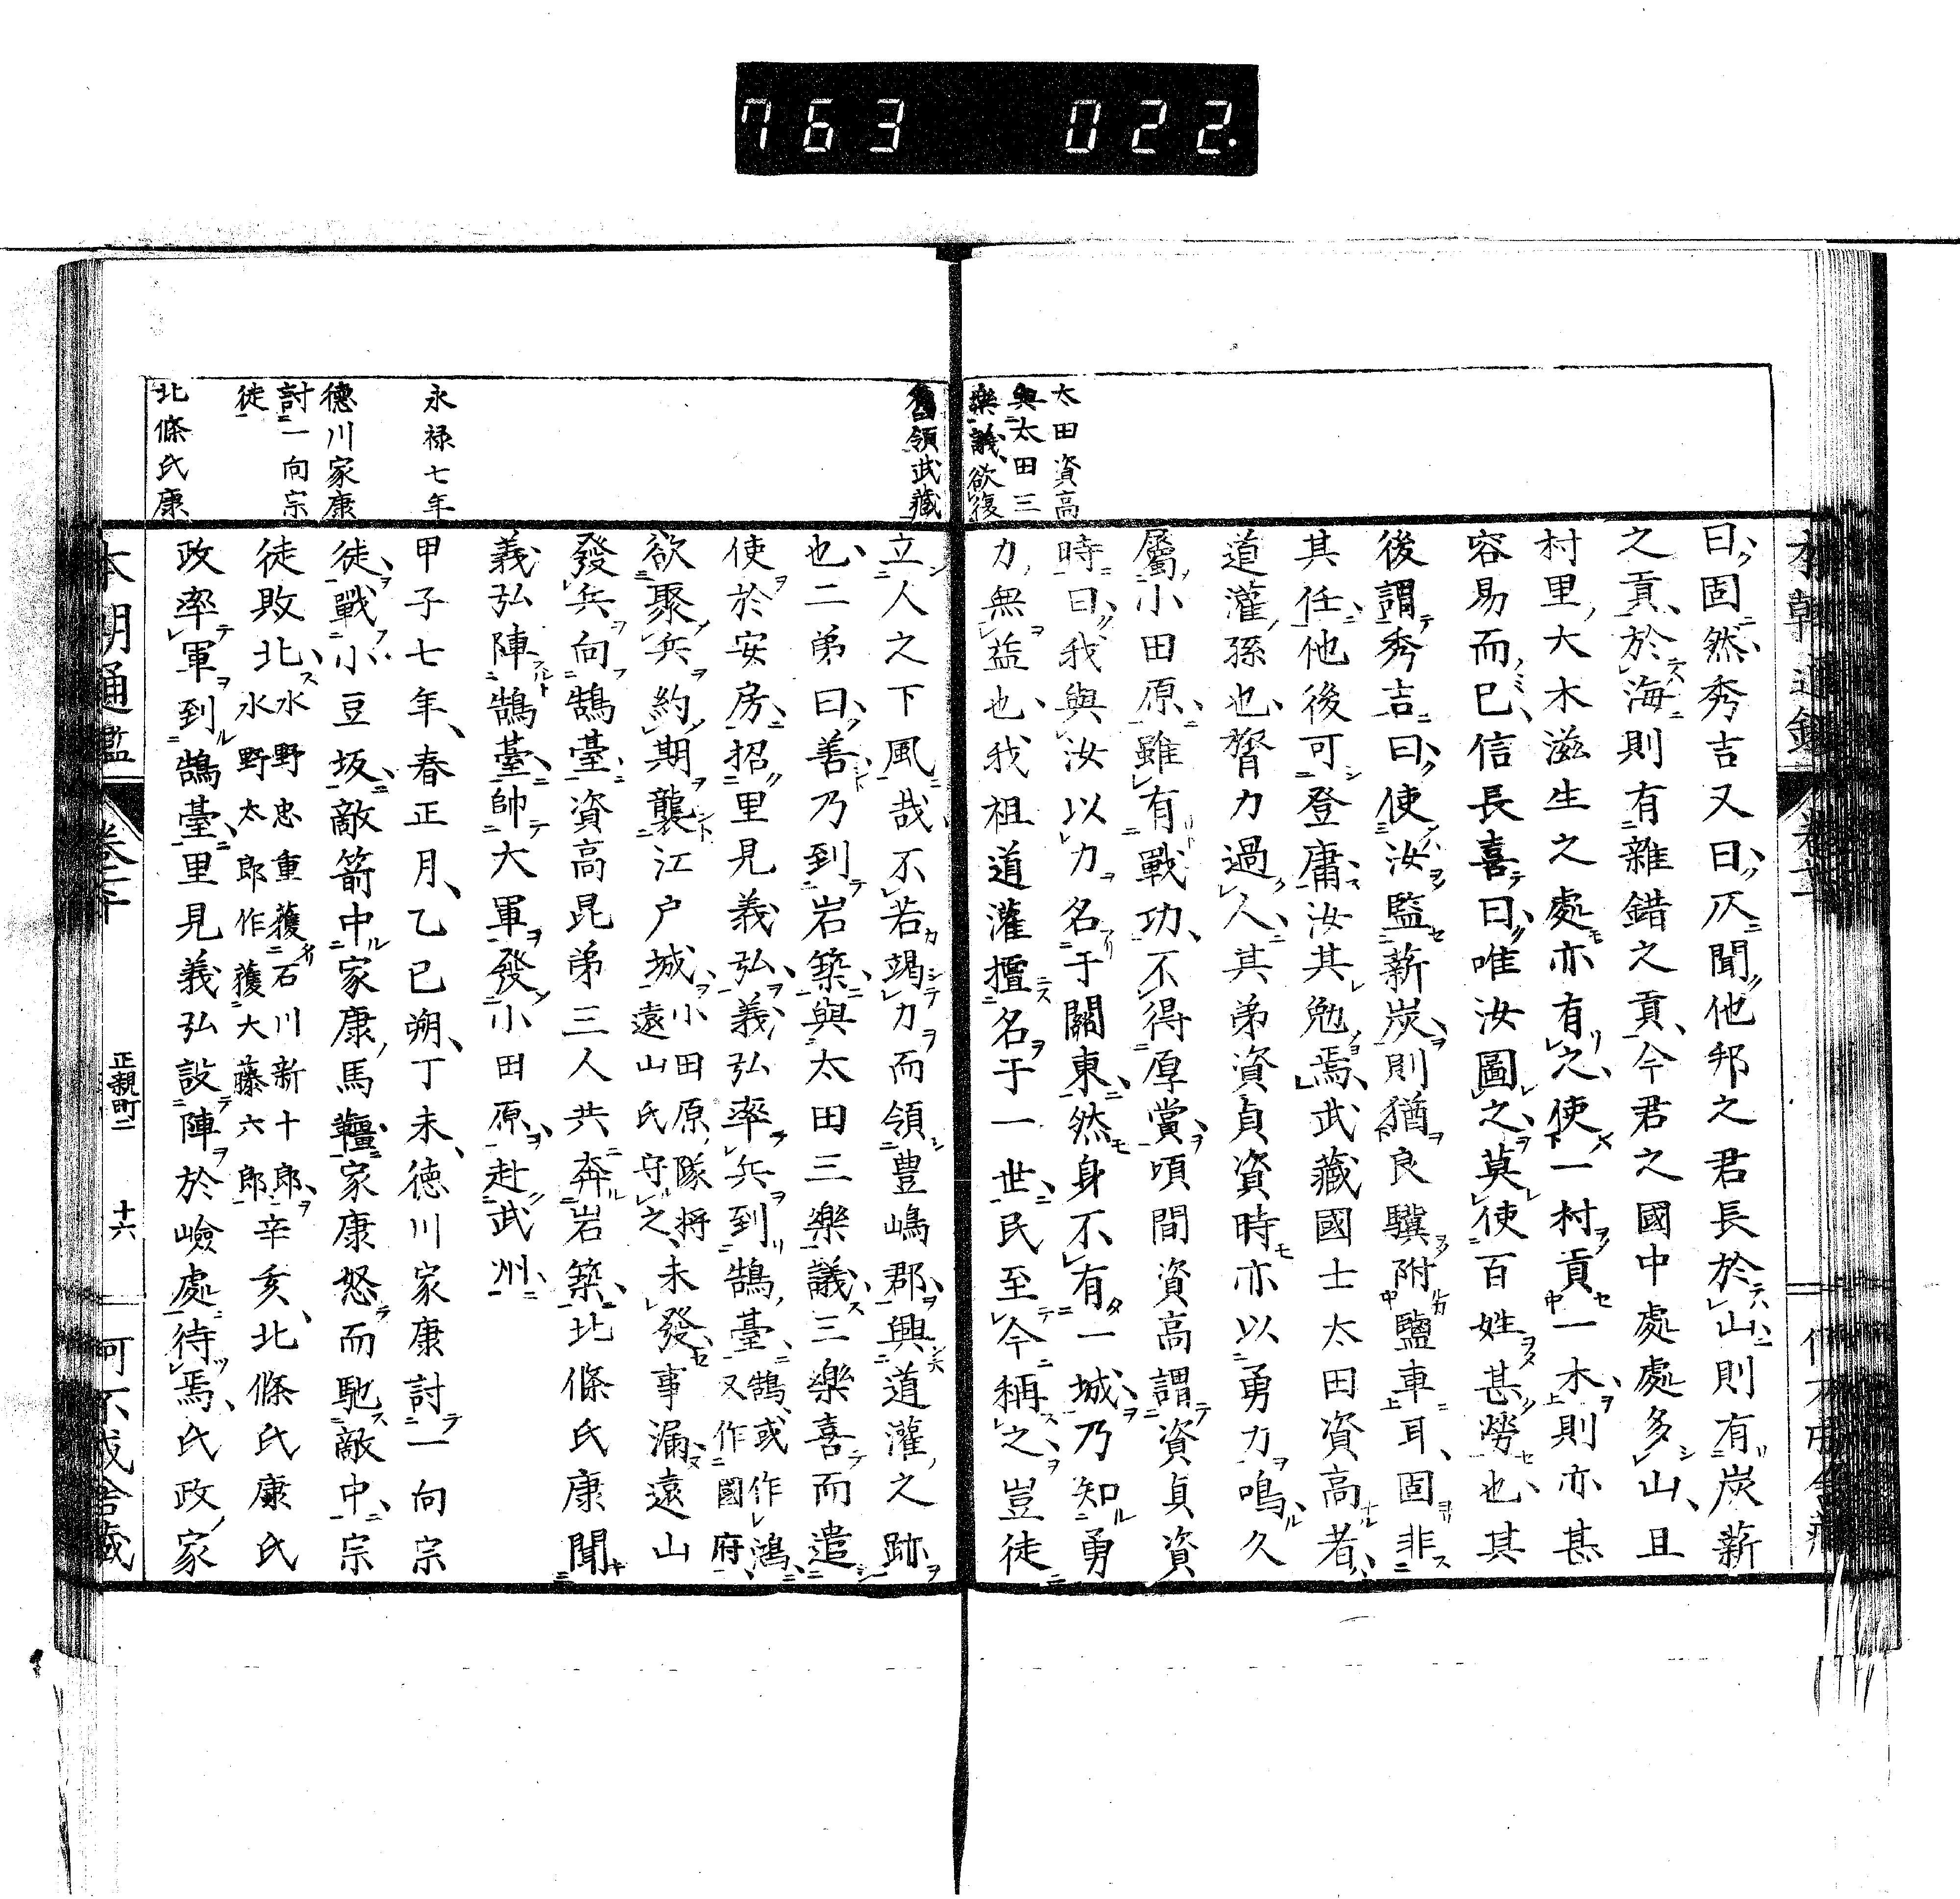 763 022.
太田資高
與太田三
樂議欲復
曰固然秀吉又曰仄聞他邦之君長於山則有炭薪
之貢於海則有雜錯之貢今君之國中處處多山且
村里大木滋生之處亦有之使一村貢一木則亦甚
容易而已信長喜曰唯汝圖之莫使百姓甚勞也其
後謂秀吉曰使汝監薪炭則猶良驥附鹽車耳固非
其任他後可登庸汝其勉焉武藏國士太田資高者
道灌孫也膂力過人其弟資貞資時亦以勇力鳴久
屬小田原雖有戰功不得厚賞頃間資高謂資貞資
時曰我與汝以力名于關東然身不有一城乃知勇
力無益也我祖道灌擅名于一世民至今稱之豈徒
領武藏
永禄七年
德川家康
討一向宗
徒
北條氏康
立人之下風哉不若竭力而領豊嶋郡興道灌之跡
也二弟曰善乃到岩築與太田三樂議三樂喜而遣
使於安房招里見義弘義弘率兵到鵠臺鵠或作鴻又作國府
欲聚兵約期襲江戸城小田原隊将遠山氏守之未發事漏遠山
發兵向鵠臺資高昆弟三人共奔岩築北條氏康聞
義弘陣鵠臺帥大軍發小田原赴武州
甲子七年春正月乙巳朔丁未德川家康討一向宗
徒戰小豆坂敵箭中家康馬韁家康怒而馳敵中宗
徒敗北水野忠重獲石川新十郎水野太郎作獲大藤六郎辛亥北條氏康氏
政率軍到鵠臺里見義弘設陣於嶮處待焉氏政家
本朝通鑑
正親町二 十六